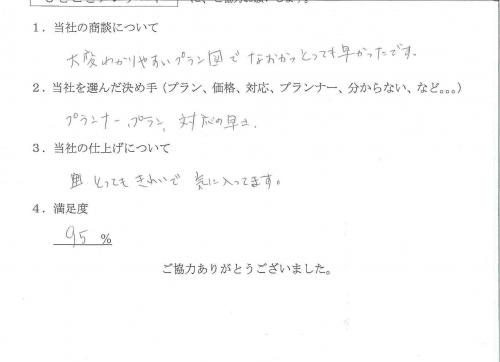 に、ご協力お願いします。
1．当社の商談について
大変わかりやすいプラン図で なおかつとっても早かったです。
2．当社を選んだ決め手（プラン、価格、対応、プランナー、分からない、など。。。）
プランナー、プラン、対応の早さ．
3．当社の仕上げについて
とってもきれいで 気に入ってます。
4．満足度
95 %
ご協力ありがとうございました。